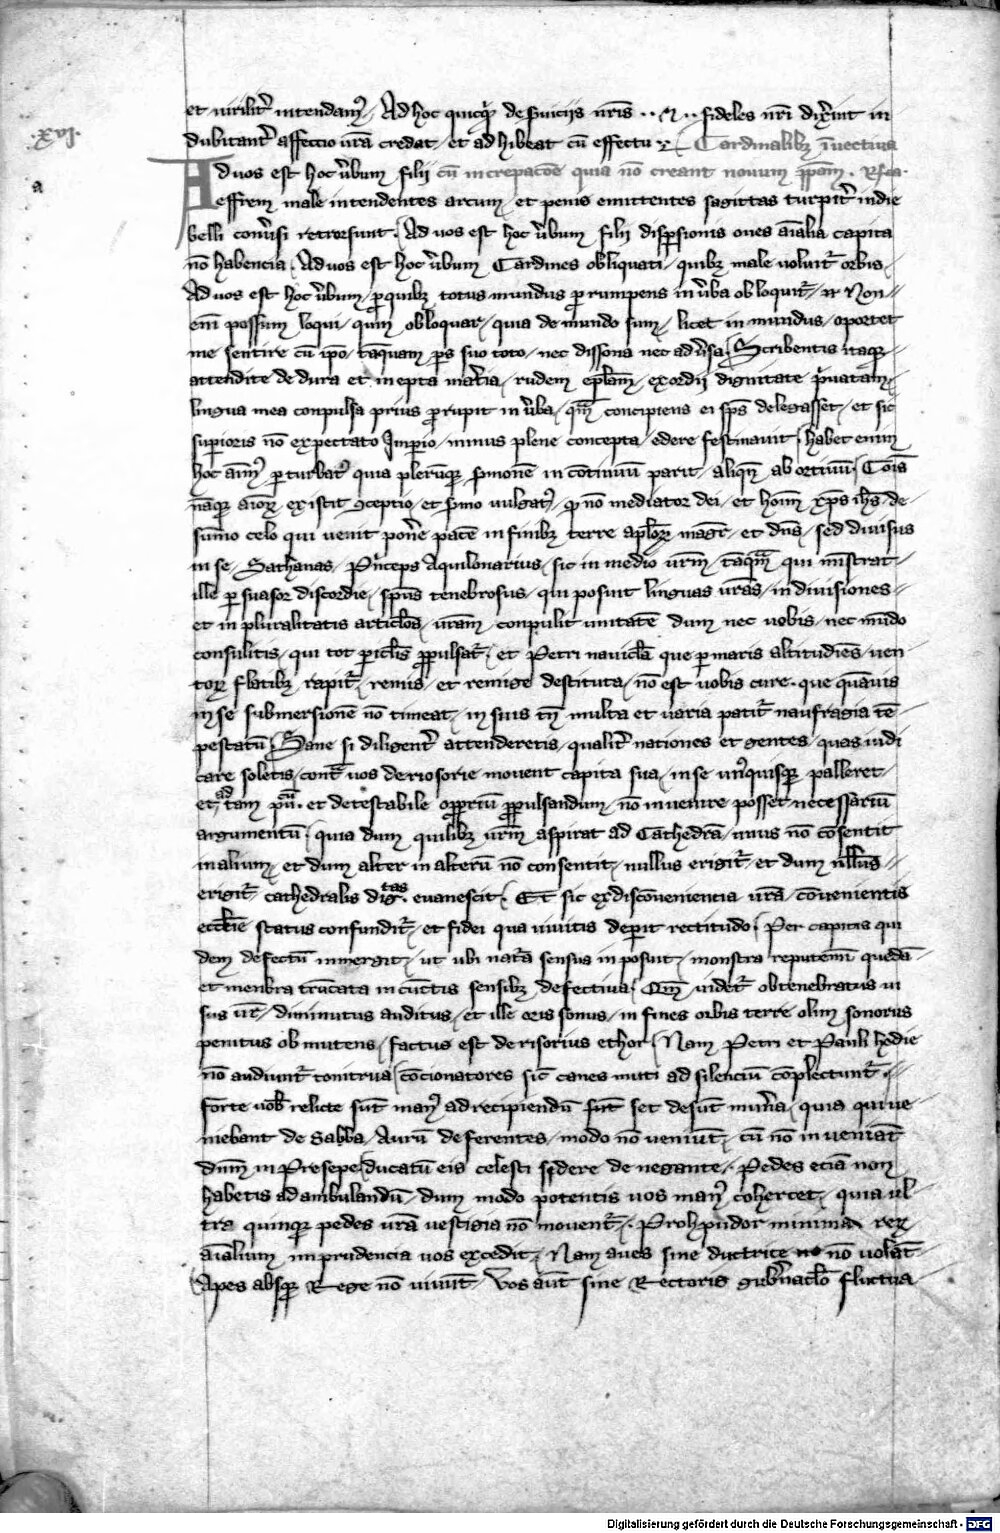 et virilit̃ intendam᷒ / Ad hoc quicq̃ de s̃viciis nr̃is ·· ⁊ ·· fideles nr̃i dix̃int in
.xvi.
dubitant̃ affectio vr̃a credat / et adhibeat cū effectu ⁊c Cardinalibꝫ īnectiua
a
Ad vos est hoc ũbum filii cū increpacōe quia nō creant nouum p̄pam . Rc̃a.
effrem male intendentes arcum / et penis emittentes sagittas turpit̃ in die
belli conũsi retrorsunt . Ad vos est hoc ũbum filii disp̱sionis oues aīalia capita
nō habencia . Ad vos est hoc ũbum Cardines obliquati / quibꝫ male voluit̃ orbis /
Ad vos est hoc ũbum / ꝑ quibꝫ totus mundus ꝓrumpens in ũba obloquit̃ // ⁊c Non //
enī possum loqui / quin obloquar / quia de mundo sum / licet inmundus / oportet
me sentire cū ip̄o / tāquam ps̄ suo toto / nec dissona nec adũsa / Scribentis itaqꝫ
attendite de dura et inepta mat̃ia / rudem ep̄lam / exordij dignitate p̃uatam /
lingua mea conpulsa prius ꝓrupit in ũba / qm̄ concipiens ei sp̄s delegasset / et sic
sup̱ioris nō expectato Imp̱io / minus plene concepta / edere festinauit . habet enim
hoc aīm᷒ ꝑturbat᷒ quia plerūqꝫ s̃monē in cōtinuū parit / aliqn̄ abortiuū / Cōis
nāqꝫ aīorꝫ existit ꝯceptio / et s̃mo vulgat᷒ / ꝙ nō mediator dei / et hoīm xp̄s ih̄s / de
sūmo celo qui venit ponẽ pacē in finibꝫ terre / ap̄lorꝫ magr̃ / et dn̄s / sed diuisus
in se / Sathanas / P̃nceps Aquilonarius / sic in medio vr̄m / tāqm̄ qui mīstrat /
ille ꝑsuasor discordie / sp̄us tenebrosus / qui posuit linguas vr̄as / in diuisiones //
et in pluralitatis articl̄os / vr̄am / conpulit vnitatē dum nec vobis / nec mūdo
consulitis / qui tot ꝑicl̄is ꝓpulsat̃ / et Petri nauicl̄a que ꝑ maris altitudīes / ven
torꝫ flatibꝫ rapit̃ / remis / et remige destituta / nō est vobis cure . que quāuis
in se submersionē nō timeat / in suis tn̄ multa et varia patit̃ naufragia tē
pestatū / Sane si diligent̃ attenderetis / qualit̃ nationes et gentes / quas iudi
care soletis / contr̃ vos derisorie mouent capita sua / in se vn᷒quisqꝫ palleret /
et ad tam pu᷒. et detestabile opp̱riū ꝓpulsandum / nō inuenire posset necessariū
argumentū / quia dum quilibꝫ vr̄m aspirat ad Cathedrā / vnus nō cōsentit
in alium / et dum alter in alterū nō consentit / nullus erigit̃ / et dum nl̄lus //
erigit̃ cathedralis dig.tas. euanescit . Et sic ex discōuenientia vr̄a / cōuenientis
eccl̄ie status confundit̃ / et fidei qua viuitis deꝑit rectitudo / Per capitis qui
dem defectū inm̱git̃ / ut ubi nat̃a sensus inposuit / monstra reputem᷒ quedā
et menbra trūcata in cūctis sensibꝫ defectiua / Qm̄ videt̃ obtenebratus vi
sus vr̃ / diminutus auditus / et ille oris sonus / in fines orbis terre olim sonorus
penitus obmutens / factus est derisorius et hor / Nam Petri et Pauli hodie
nō audiunt̃ tonitrua / cōcionatores sic̄ canes muti ad silenciū cōplectunt̃ .
forte vob̄ relicte sūt man᷒ ad recipiendū sūt set desūt mun̄ia / quia qui ve
niebant de Sabba / Aurū deferentes / modo nō veniūt / cū nō inueniāt
dn̄m in Presepe / ducatū eis celesti sydere denegante / Pedes eciā non
habetis ad ambulandū / dum modo potentis vos man᷒ cohercet / quia vl
tra quinqꝫ pedes vr̄a vestigia nō mouent̃ . Proh pudor minima rerꝫ
aīalium inprudencia vos excedit / Nam aues sine ductrice nō volāt
Apes absqꝫ Rege nō viuūt / Vos aūt sine Rectoris gub̃nacl̄o fluctua
Digitalisierung gefördert durch die Deutsche Forschungsgemeinschaft - DFG